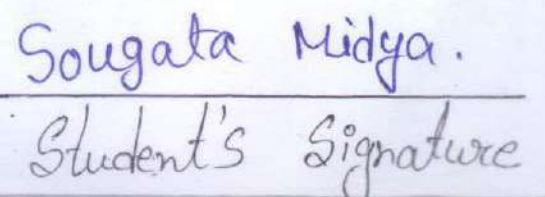 Sougata Midya.
Student's Signature